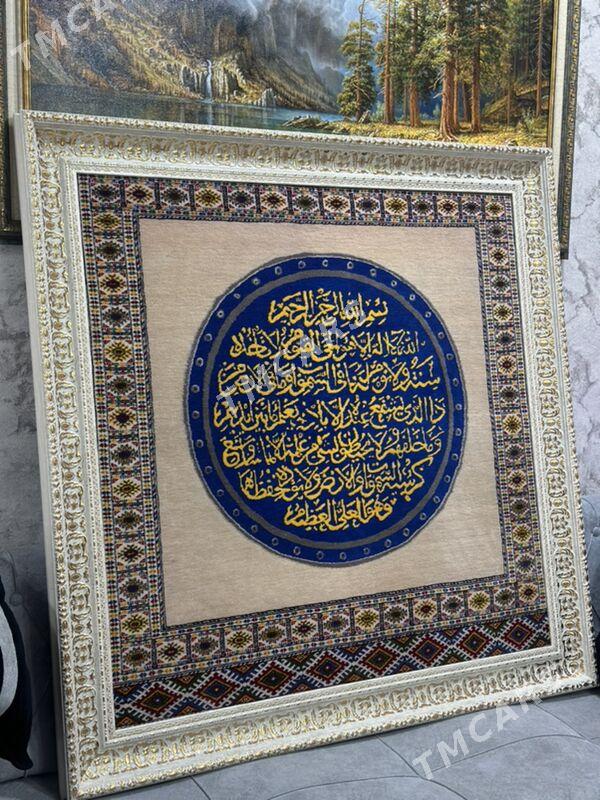 TMCARS
TMCARS
بسم الله الرحمن الرحيم
الله لا اله الا هو الحي القيوم لا تاخذه
سنة ولا نوم له ما في السموات وما في الارض من
ذا الذي يشفع عنده الا باذنه يعلم ما بين ايديهم
وما خلفهم ولا يحيطون بشيء من علمه الا بما شاء وسع
كرسيه السموات والارض ولا يؤده حفظهما
وهو العلي العظيم
TMCARS
TMCARS